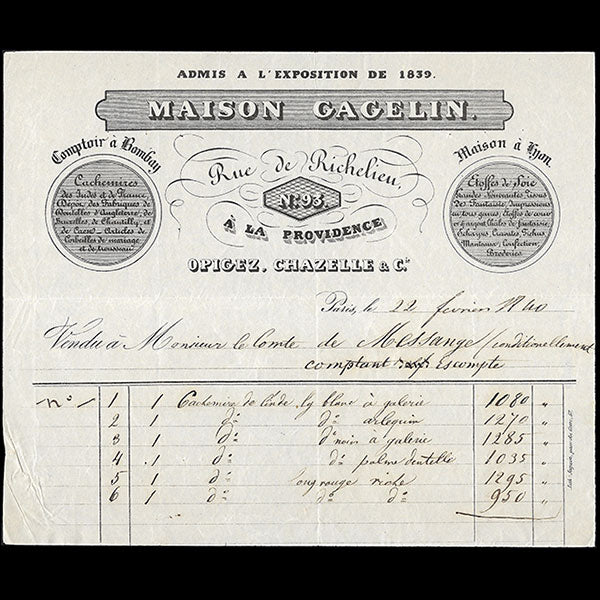 ADMIS A L'EXPOSITION DE 1839.
MAISON GAGELIN.
Comptoir à Bombay
Cachemires
des Indes et de France,
Dépôt, des Fabriques de
Dentelles d'Angleterre, de
Bruxelles, de Chantilly, et
de Caen. Articles de
Corbeilles de mariage
et de trousseau
Rue de Richelieu,
No. 93.
À LA PROVIDENCE
OPIGEZ, CHAZELLE & Cie.
Maison à Lyon.
Etoffes de Soie
Grandes Nouveautés Tissus
de Fantaisie, Impressions
en tous genres, étoffes de cour
or d'argent Châles de fantaisie
Echarpes Cravates, Fichus,
Manteaux, Confection,
Broderies
Paris, le 22 février 1840
Vendu à Monsieur le Comte de Messange / conditionellement
comptant escompte
No. 1 1 Cachemire de l'inde, lg blanc à galerie 1080 "
2 1 do do arlequin 1270 "
3 1 do do noir à galerie 1285 "
4 1 do do palme dentelle 1035 "
5 1 do long rouge riche 1295 "
6 1 do do do 950 "